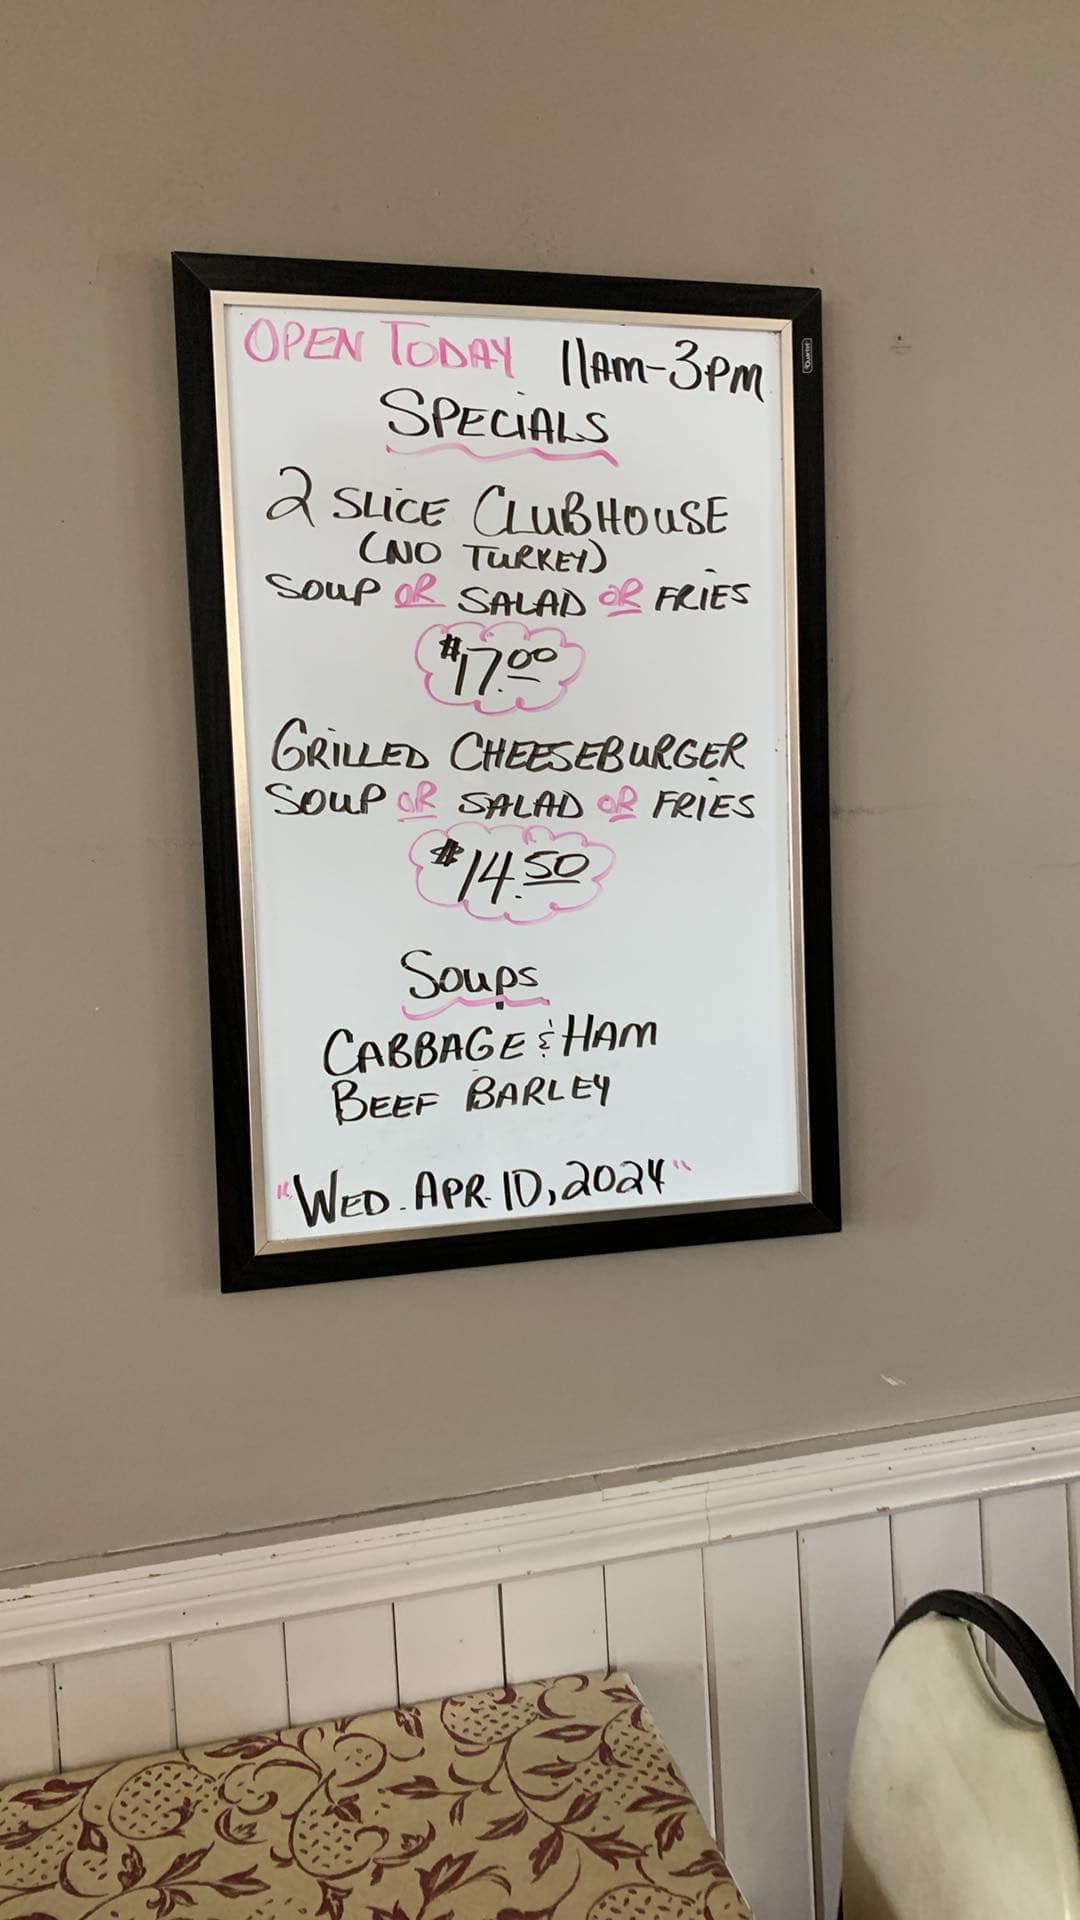 OPEN TODAY 11AM-3PM
SPECIALS
2 SLICE CLUBHOUSE
(NO TURKEY)
SOUP OR SALAD OR FRIES
$17.00
GRILLED CHEESEBURGER
SOUP OR SALAD OR FRIES
$14.50
SOUPS
CABBAGE & HAM
BEEF BARLEY
"WED. APR. 10, 2024"
Quartet